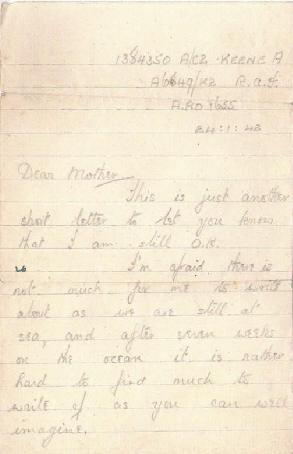 1384350 A/C2 KEENE A
R.A.F.
A.P.O 1655
24:1:42
Dear Mother
This is just another
short letter to let you know
that I am still O.K.
I'm afraid there is
not much for me to write
about as we are still at
sea, and after seven weeks
on the ocean it is rather
hard to find much to
write of as you can well
imagine.